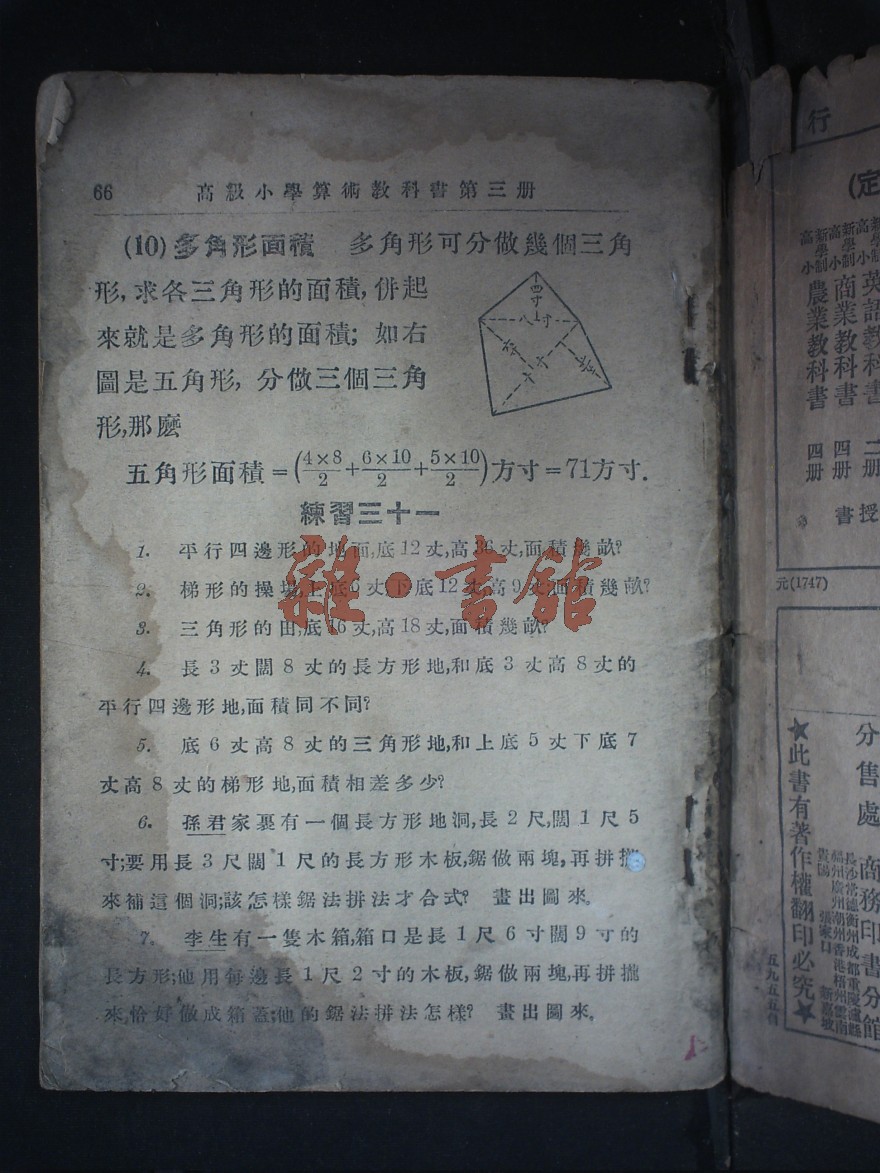 66 高級小學算術教科書第三册
(10) 多角形面積 多角形可分做幾個三角
形,求各三角形的面積,併起
來就是多角形的面積; 如右
圖是五角形, 分做三個三角
形,那麽
四寸
八寸
十寸
五角形面積=(4×8/2+6×10/2+5×10/2)方寸=71方寸.
練習三十一
1. 平行四邊形的地面,底12丈,高36丈,面積幾畝?
2. 梯形的操場,上底6丈,下底12丈,高9丈,面積幾畝?
3. 三角形的田,底16丈,高18丈,面積幾畝?
4. 長3丈闊8丈的長方形地,和底3丈高8丈的
平行四邊形地,面積同不同?
5. 底6丈高8丈的三角形地,和上底5丈下底7
丈高8丈的梯形地,面積相差多少?
6. 孫君家裏有一個長方形地洞,長2尺,闊1尺5
寸;要用長3尺闊1尺的長方形木板,鋸做兩塊,再拼攏
來補這個洞;該怎樣鋸法拼法才合式? 畫出圖來。
7. 李生有一隻木箱,箱口是長1尺6寸闊9寸的
長方形;他用每邊長1尺2寸的木板,鋸做兩塊,再拼攏
來,恰好做成箱蓋;他的鋸法拼法怎樣? 畫出圖來。
雜·書館
行
(定
新學制高小 英語教科書 二册
新學制高小 商業教科書 四册
新學制高小 農業教科書 四册
授
書
元(1747)
分售處 商務印書分館
長沙常德衡州成都重慶瀘縣
福州廣州潮州香港梧州雲南
貴陽 張家口 新嘉坡
★此書有著作權翻印必究★
五九五五自